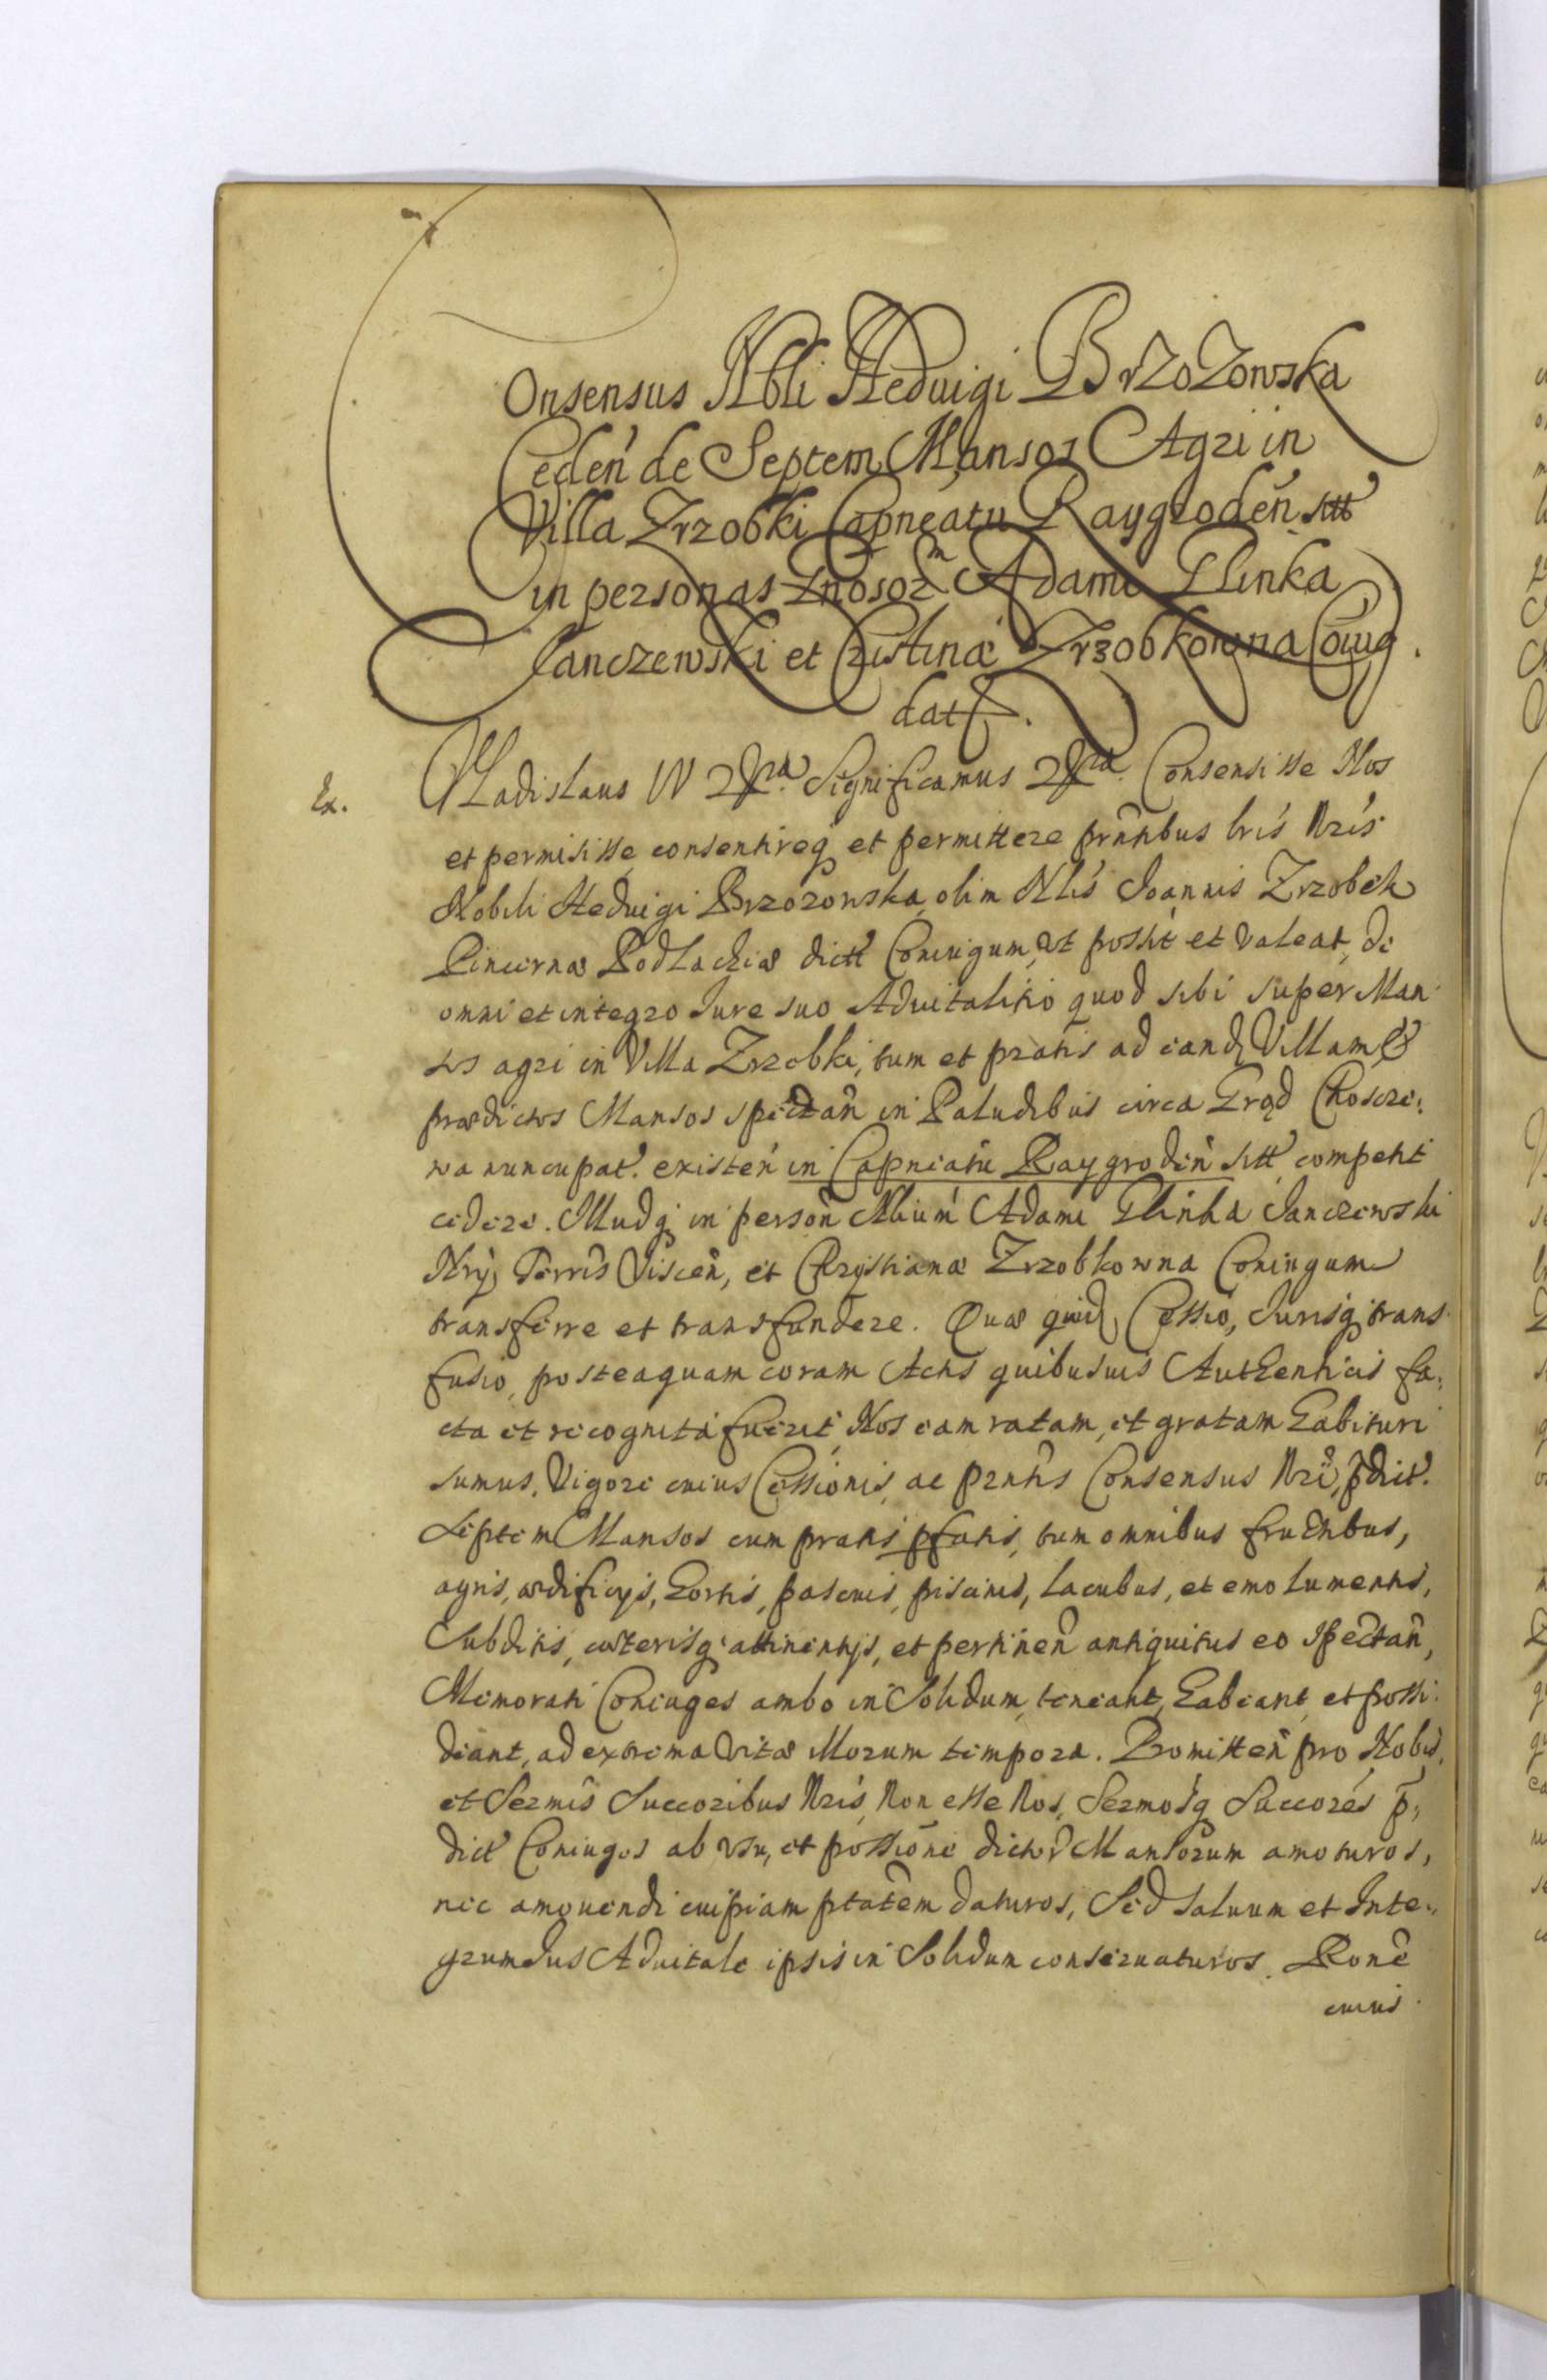 Consensus Nbli Hedvigi Brzozowska
Ceden de Septem Mansos Agri in
Villa Zrzobki Capneatu Raygroden sitt
in personas Gnosor Adami Glinka
Janczewski et Cristinæ Zrzobkowna Coiug.
datt.
Ex.
Vladislaus IV Significamus Consensisse Nos
et permisisse, consentireq et permittere prntibus lris Nris
Nobili Hedvigi Brzozowska, olim Nlis Joannis Zrzobek
Pincernæ Podlachiæ dictt Coniugum, Vt possit et Valeat, de
omni et integro Jure suo Aduitalitio quod sibi super Man
sos agri in Villa Zrzobki, tum et pratis ad eand Villam &
prædictos Mansos spectan in Paludibus circa Grąd Choscze:
wa nuncupat. existen in Capneatu Raygroden sitt competit
cedere. Illudq in person Nlium Adami Glinka Janczewski
Nrij Terris Viscen, et Chrystianæ Zrzobkowna Coniugum
transferre et transfundere. Quæ quid Cessio, Jurisq trans
fusio, posteaquam coram Actis quibusuis Authenticis fa:
cta et recognita fuerit, Nos eam ratam, et gratam habituri
sumus. Vigore cuius Cessionis, ac prntis Consensus Nri, pdict.
Septem Mansos cum pratis pfatis, tum omnibus fructibus,
agris, ædificijs, hortis, pascuis, piscinis, lacubus, et emolumentis,
Subditis, cæterisq attinentijs, et pertinen antiquitus eo spectan,
Memorati Coniuges ambo in Solidum, teneant, habeant, et possi:
deant, ad extrema Vitæ Illorum tempora. Promitten pro Nobis,
et Sermis Succoribus Nris, Non esse Nos, Sermosq Succores p,
dict Coniuges ab Vsu, et possione dictor Mansorum amoturos,
nec amouendi cuipiam ptatem daturos, Sed saluum et Inte:,
grum Jus Aduitale ipsis in Solidum conseruaturos. Rone
cuius